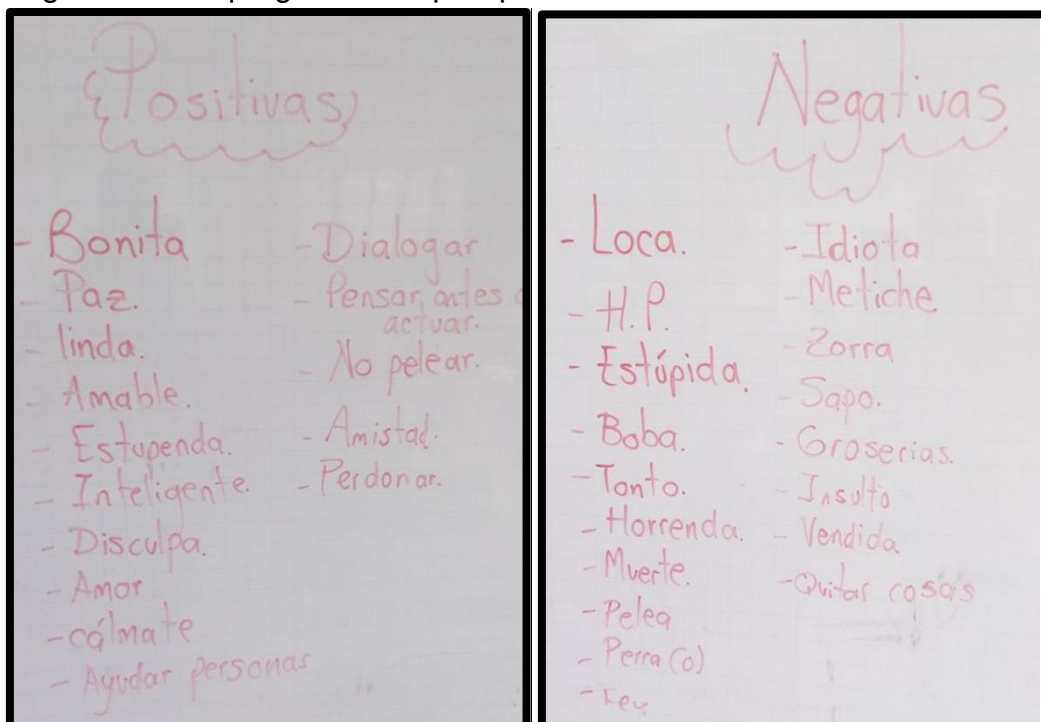 Positivas
- Bonita
- Paz.
- linda.
- Amable.
- Estupenda.
- Inteligente.
- Disculpa.
- Amor
- cálmate
- Ayudar personas
- Dialogar
- Pensar antes
actuar.
- No pelear.
- Amistad.
- Perdonar.
Negativas
- Loca.
- H.P.
- Estúpida.
- Boba.
- Tonto.
- Horrenda.
- Muerte.
- Pelea
- Perra (o)
- Idiota
- Metiche
- Zorra
- Sapo.
- Groserias.
- Insulto
- Vendida
- Quitar cosas